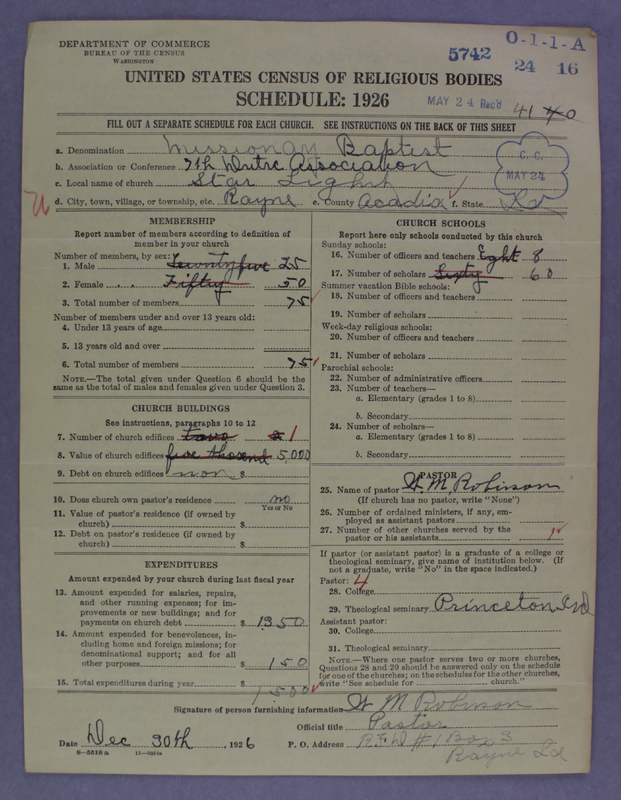 DEPARTMENT OF COMMERCE
BUREAU OF THE CENSUS
WASHINGTON
5742
O-1-1-A
24 16
UNITED STATES CENSUS OF RELIGIOUS BODIES
SCHEDULE: 1926
MAY 24 Rec'd
41 40
FILL OUT A SEPARATE SCHEDULE FOR EACH CHURCH. SEE INSTRUCTIONS ON THE BACK OF THIS SHEET
a. Denomination Missionary Baptist
b. Association or Conference 7th Association
c. Local name of church Star Light
C. C. MAY 24
d. City, town, village, or township, etc. Rayne e. County Acadia f. State La
MEMBERSHIP
Report number of members according to definition of
member in your church
Number of members, by sex:
1. Male Twentyfive 25
2. Female Fifty 50
3. Total number of members 75
Number of members under and over 13 years old:
4. Under 13 years of age
5. 13 years old and over
6. Total number of members 75
NOTE.—The total given under Question 6 should be the
same as the total of males and females given under Question 3.
CHURCH BUILDINGS
See instructions, paragraphs 10 to 12
7. Number of church edifices 1
8. Value of church edifices five thosend 5,000
9. Debt on church edifices non $
10. Does church own pastor's residence no
Yes or No
11. Value of pastor's residence (if owned by
church) $
12. Debt on pastor's residence (if owned by
church) $
EXPENDITURES
Amount expended by your church during last fiscal year
13. Amount expended for salaries, repairs,
and other running expenses; for im-
provements or new buildings; and for
payments on church debt $ 1350
14. Amount expended for benevolences, in-
cluding home and foreign missions; for
denominational support; and for all
other purposes $ 150
15. Total expenditures during year $ 1500
CHURCH SCHOOLS
Report here only schools conducted by this church
Sunday schools:
16. Number of officers and teachers Eight 8
17. Number of scholars Sixty 60
Summer vacation Bible schools:
18. Number of officers and teachers
19. Number of scholars
Week-day religious schools:
20. Number of officers and teachers
21. Number of scholars
Parochial schools:
22. Number of administrative officers
23. Number of teachers—
a. Elementary (grades 1 to 8)
b. Secondary
24. Number of scholars—
a. Elementary (grades 1 to 8)
b. Secondary
PASTOR
25. Name of pastor W. M. Robinson
(If church has no pastor, write "None")
26. Number of ordained ministers, if any, em-
ployed as assistant pastors
27. Number of other churches served by the
pastor or his assistants
If pastor (or assistant pastor) is a graduate of a college or
theological seminary, give name of institution below. (If
not a graduate, write "No" in the space indicated.)
Pastor: 4
28. College
29. Theological seminary Princeton Ind
Assistant pastor:
30. College
31. Theological seminary
NOTE.—Where one pastor serves two or more churches,
Questions 28 and 29 should be answered only on the schedule
for one of the churches; on the schedules for the other churches,
write "See schedule for church."
Signature of person furnishing information W M Robinson
Official title Pastor
Date Dec 30th, 1926 P. O. Address R.F.D #1 Box 3
Rayne La
8—5518 a